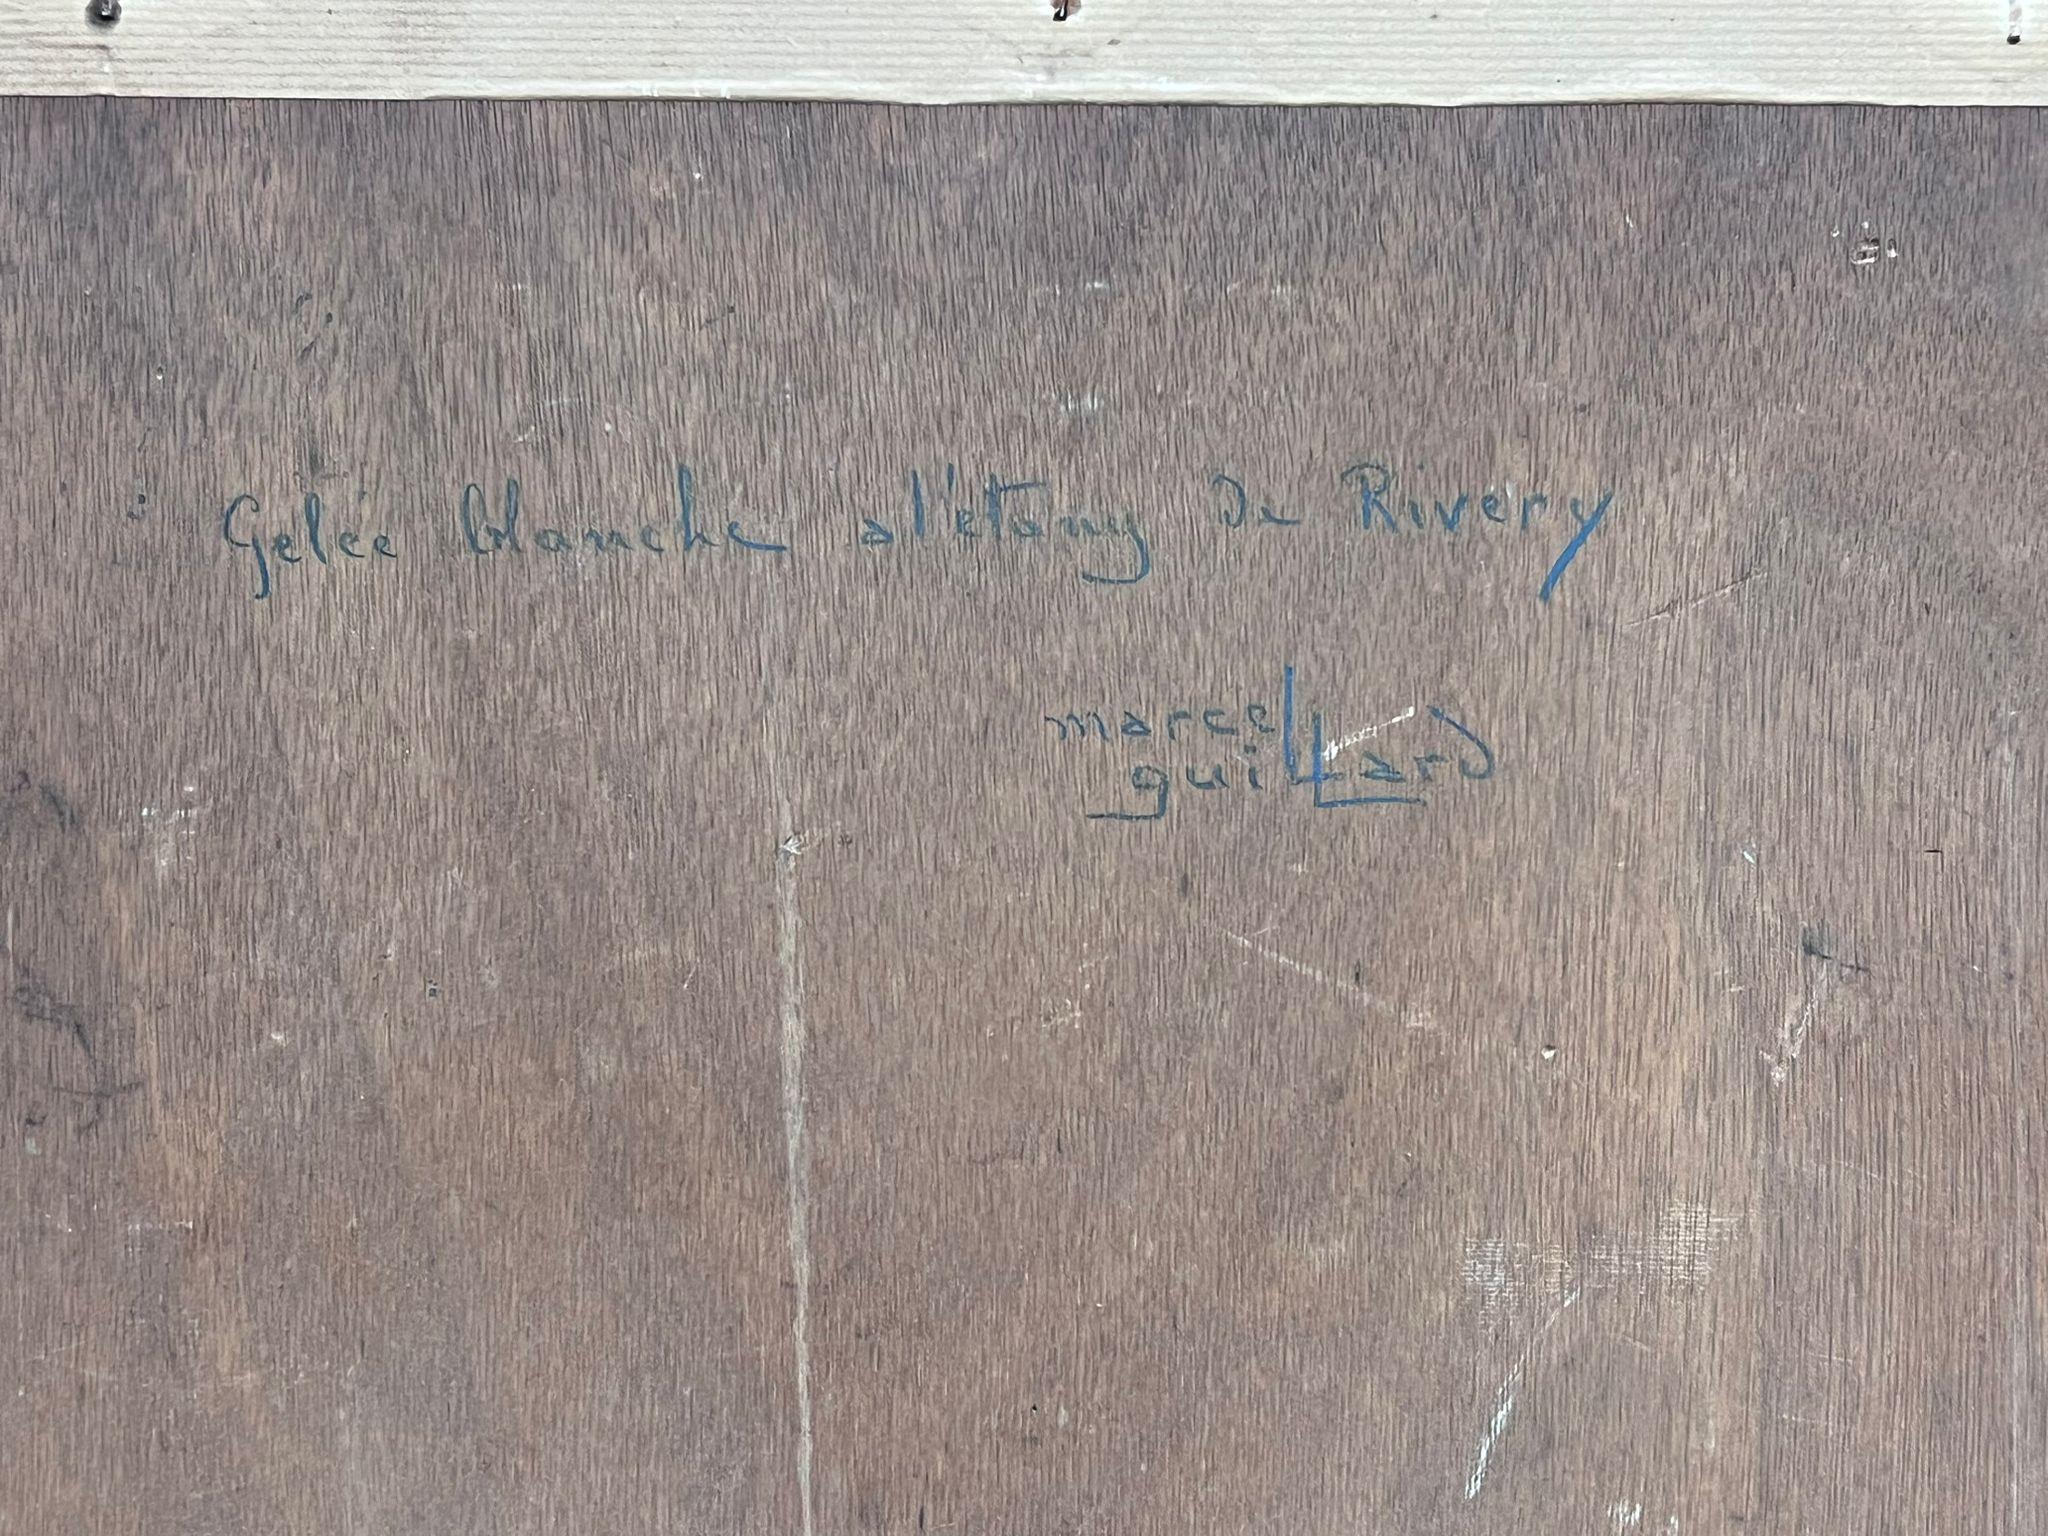 Gelée blanche a l'étang de Rivery
marcel
guillard